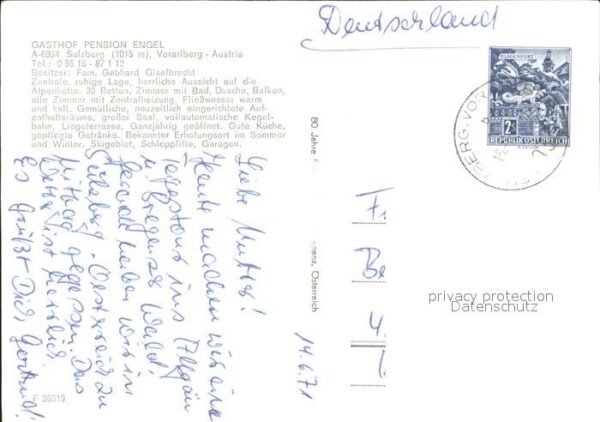 GASTHOF PENSION ENGEL
A-6934 Sulzberg (1015 m), Vorarlberg - Austria
Tel.: 0 55 16 - 87 1 12
Besitzer: Fam. Gebhard Giselbrecht
Zentrale, ruhige Lage, herrliche Aussicht auf die
Alpenkette. 30 Betten, Zimmer mit Bad, Dusche, Balkon,
alle Zimmer mit Zentralheizung. Fließwasser warm
und kalt. Gemütliche, neuzeitlich eingerichtete Auf-
enthaltsräume, großer Saal, vollautomatische Kegel-
bahn, Liegeterrasse. Ganzjährig geöffnet. Gute Küche,
gepflegte Getränke. Bekannter Erholungsort im Sommer
und Winter. Skigebiet, Schlepplifte, Garagen.
Liebe Mutter!
Heute machen wir eine
Tagestour ins Allgäu
u. Bregenzer Wald!
Gerade haben wir in
Sulzberg, Oesterreich zu
Mittag gegessen. Das
Wetter ist herrlich
Es grüßt Dich Gertrud!
F 26519
80 Jahre
Österreich
14.6.71
Deutschland
KLAGENFURT
2 S
REPUBLIK ÖSTERREICH
BERG, VOR
Fr
Be
4
privacy protection
Datenschutz